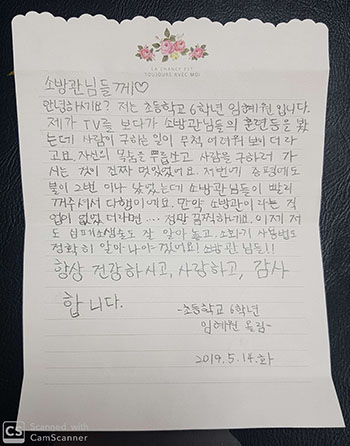 LA CHANCE EST
TOUJOURS AVEC MOI
소방관님들께♡
안녕하세요? 저는 초등학교 6학년 임혜원 입니다.
제가 TV를 보다가 소방관님들의 훈련등을 봤
는데 사람이 구하는 일이 무척 어려워 보이더라
고요. 자신의 목숨을 무릅쓰고 사람을 구하러 가
시는 것이 진짜 멋있었어요. 저번에 증평에도
불이 2번 이나 났었는데 소방관님들이 빨리
꺼주셔서 다행이에요. 만약 소방관이라는 직
업이 없었더라면.... 정말 끔찍하네요. 이제 저
도 심폐소생술도 잘 알아 놓고, 소화기 사용법도
정확히 알아 놔야 겠어요! 소방관 님들!!
항상 건강하시고, 사랑하고, 감사
합니다.
-초등학교 6학년
임혜원 올림-
2019.5.14.화
CS Scanned with
CamScanner